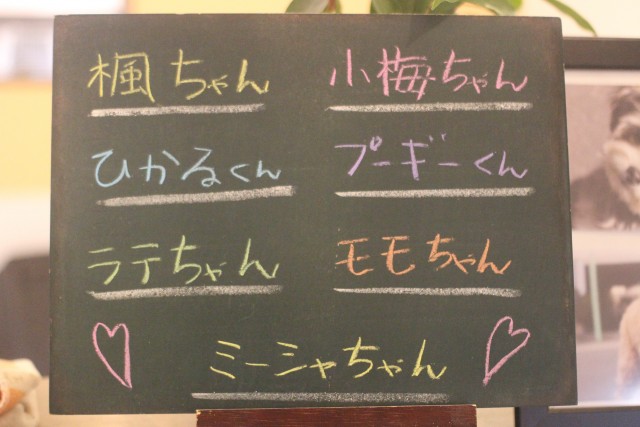 楓ちゃん 小梅ちゃん
ひかるくん プーギーくん
ラテちゃん モモちゃん
ミーシャちゃん